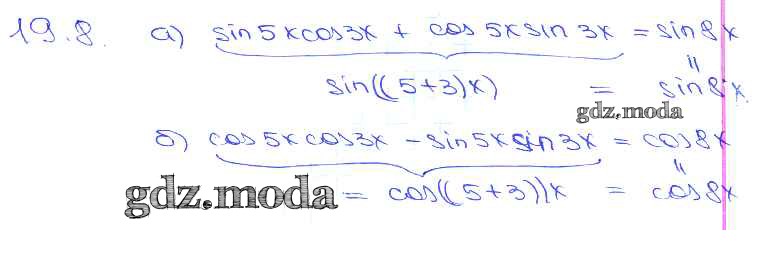 19.8. а) sin 5x cos 3x + cos 5x sin 3x = sin 8x
sin((5+3)x) = sin 8x
gdz.moda
б) cos 5x cos 3x - sin 5x sin 3x = cos 8x
gdz.moda = cos((5+3))x = cos 8x